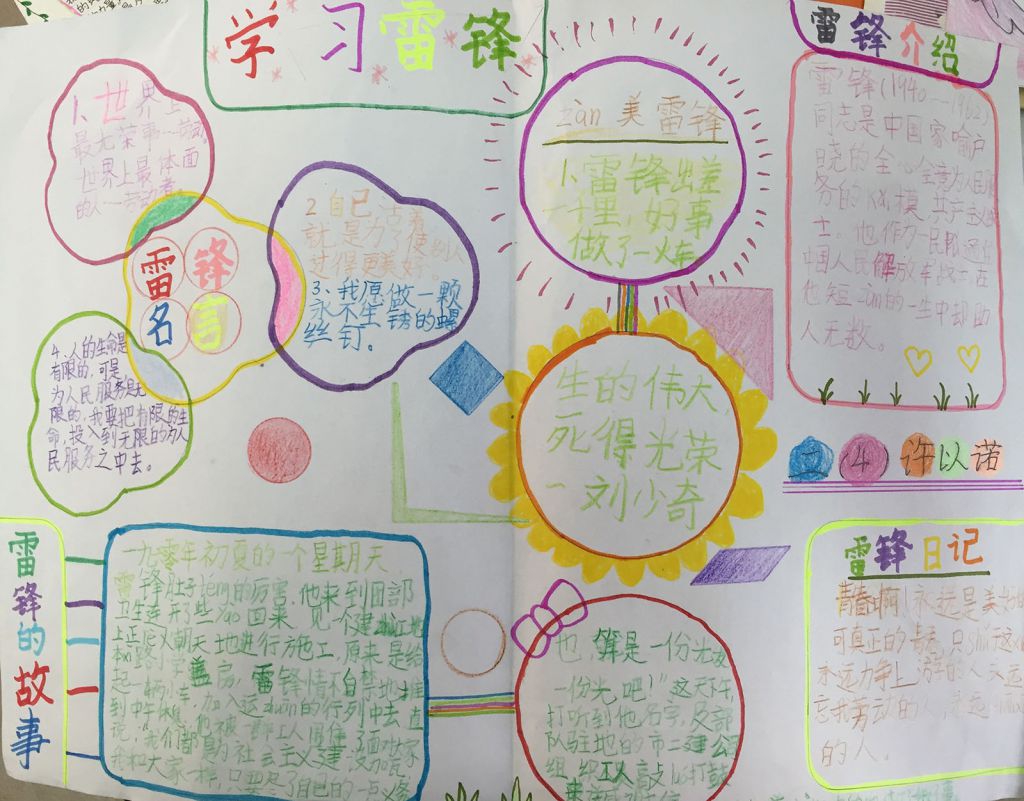 学习雷锋
1、世界上
最光荣事—劳动
世界上最体面
的人—劳动者。
雷锋
名言
2 自己活着
就是为了使别人
过得更美好。
3、我愿做一颗
永不生锈的螺
丝钉。
4、人的生命是
有限的，可是
为人民服务是无
限的，我要把有限的生
命，投入到无限的为人
民服务之中去。
zàn 美雷锋
1、雷锋出差
一千里，好事
做了一火车
生的伟大，
死得光荣
—刘少奇
雷锋介绍
雷锋（1940—1962）
同志是中国家喻户
晓的全心全意为人民服
务的 模 共产主义战
士。他作为一民
中国人民解放军战士在
他短 的一生中却助
人无数。
二（4）许以诺
雷锋日记
青春啊！永远是美好
可真正的青春，只 这
永远力争上游的人 永远
忘我劳动的人，永远
的人。
雷锋的故事
一九零年初夏的一个星期天
雷锋肚子 的厉害，他来到团部
卫生连开了些 回来，见一个建 工地
上正 天 地进行施工，原来是给
本 路小学盖房，雷锋情不自禁地推
起一辆小车，加入运 的行列中去 直
到中午休 ，他被 工人围住了面对
说，“我们都是为社会主义建
我和大家一样，只要尽了自己的一点义务
也，算是一份光
一份光吧！”这天下午，
打听到他名字，及部
队驻地的市二建公司
组织工人敲 打鼓
来